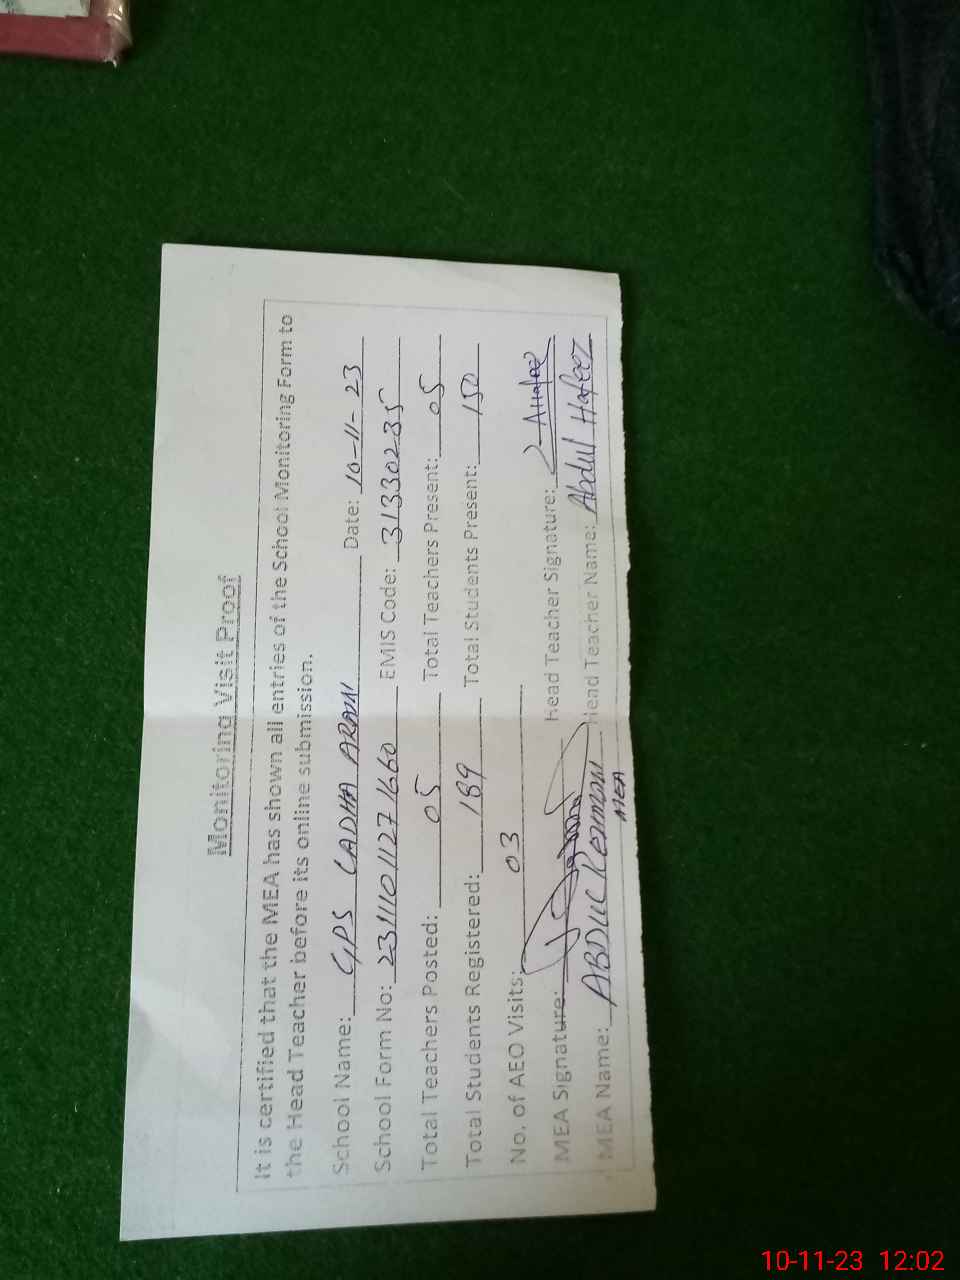 Monitoring Visit Proof
It is certified that the MEA has shown all entries of the School Monitoring Form to
the Head Teacher before its online submission.
School Name: GPS CADHA ARAIN Date: 10-11-23
School Form No: 231110112271660 EMIS Code: 31330235
Total Teachers Posted: 05 Total Teachers Present: 05
Total Students Registered: 189 Total Students Present: 150
No. of AEO Visits: 03
MEA Signature: Head Teacher Signature: AHafeez
MEA Name: ABDUL REHMAN Head Teacher Name: Abdul Hafeez
MEA
10-11-23 12:02